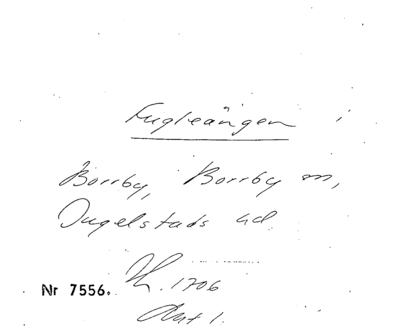 Fugleängen i
Borrby, Borrby sn,
Ingelstads hd
Nr 7556.
1706